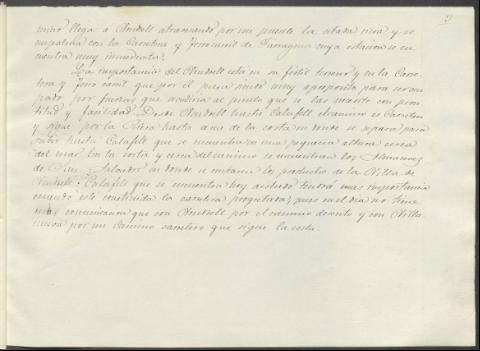 mino llega á Vendrell atravesando por un puente la citada riera y se
empalma con la Carretera y Ferrocarril de Tarragona cuya estacion se en-
cuentra muy inmediata.
La importancia del Vendrell está en su fértil terreno y en la Carre-
tera y ferro carril que por él pasa siendo muy aproposito para ser ocu-
pado por fuerzas que acudirian al punto que se las mande con pron-
titud y facilidad. Desde Vendrell hasta Calafell el camino es Carretero
y sigue por la Riera hasta cerca de la costa en donde se separa para
entrar hasta Calafell que se encuentra en una pequeña altura cerca
del mar. En la costa y cerca del camino se encuentran los Almacenes
de San Salvador en donde se embarca los productos de la Villa de
Vendrell. Calafell que se encuentra hoy aislado tendrá mas importancia
cuando esté construida la carretera proyectada, pues en el dia no tiene
mas comunicacion que con Vendrell por el camino descrito y con Villa-
nueva por un camino carretero que sigue la costa.